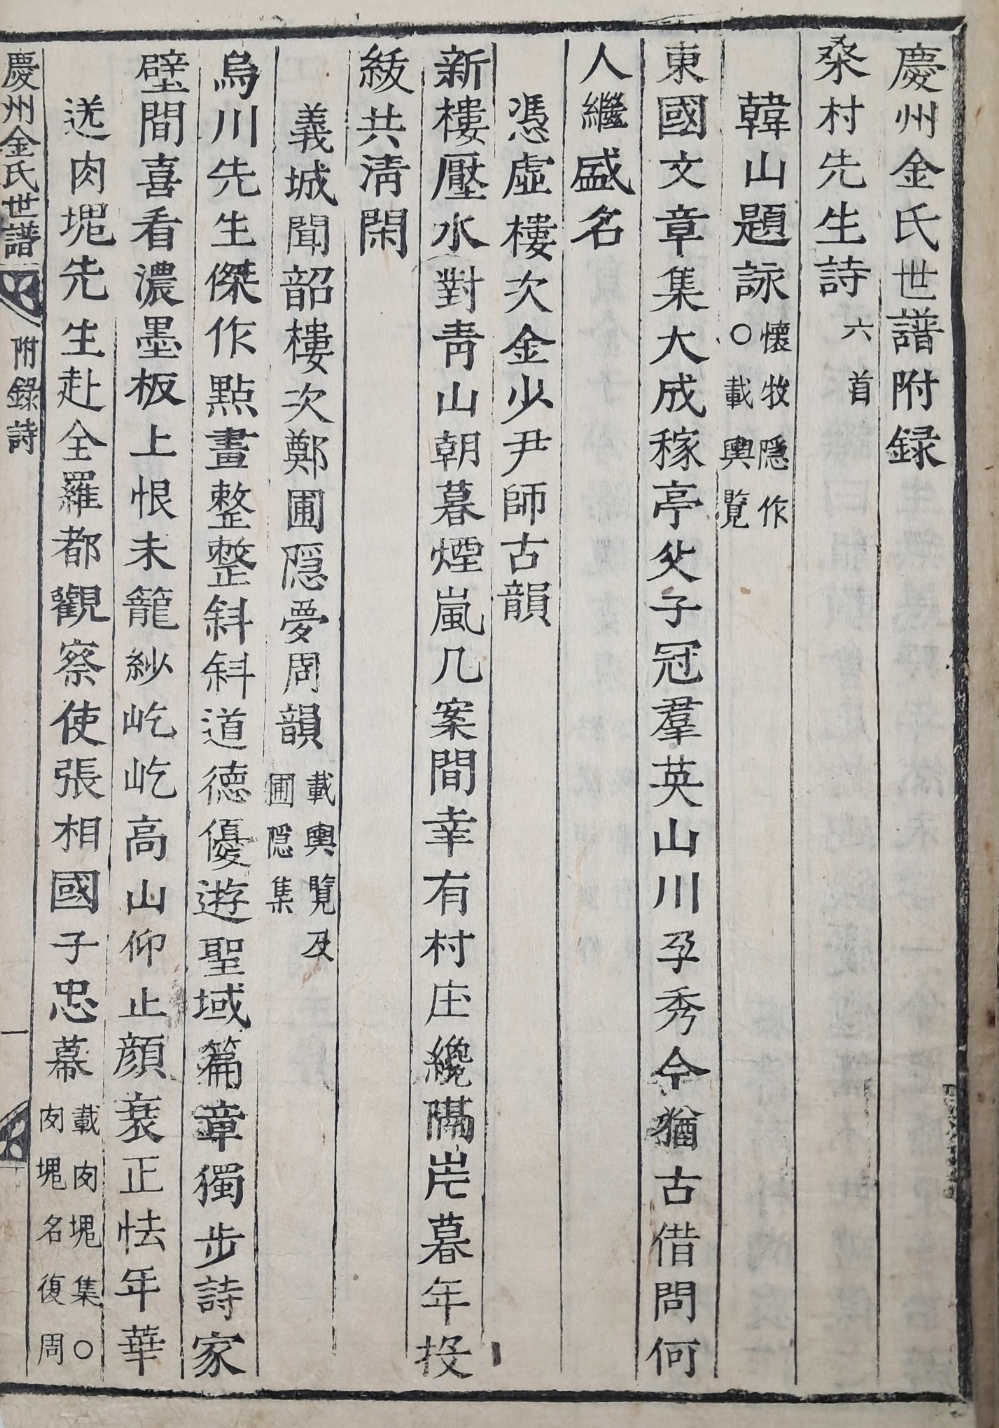 慶州金氏世譜附録
桑村先生詩 六首
韓山題詠 懷牧隱作
○載輿覽
東國文章集大成稼亭父子冠羣英山川孕秀今猶古借問何
人繼盛名
憑虛樓次金少尹師古韻
新樓壓水對靑山朝暮煙嵐几案間幸有村庄纔隔岸暮年投
紱共淸閑
義城聞韶樓次鄭圃隱夢周韻 載輿覽及
圃隱集
烏川先生傑作點畫整整斜斜道德優遊聖域篇章獨步詩家
壁間喜看濃墨板上恨未籠紗屹屹高山仰止顔衰正怯年華
送肉塊先生赴全羅都觀察使張相國子忠幕 載肉塊集○
肉塊名復周
慶州金氏世譜 附錄詩 一